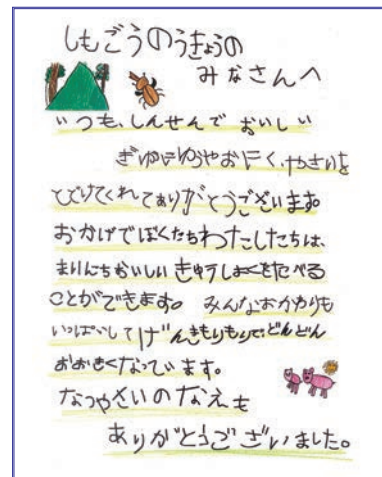 しもごうのうきょうの
みなさんへ
いつも、しんせんで おいしい
ぎゅにゅうやおにく、やさいを
とどけてくれてありがとうございます。
おかげでぼくたちわたしたちは、
まいにちおいしいきゅうしょくをたべる
ことができます。 みんなおかわりも
いっぱいしてげんきもりもりで、どんどん
おおきくなっています。
なつやさいのなえも
ありがとうございました。